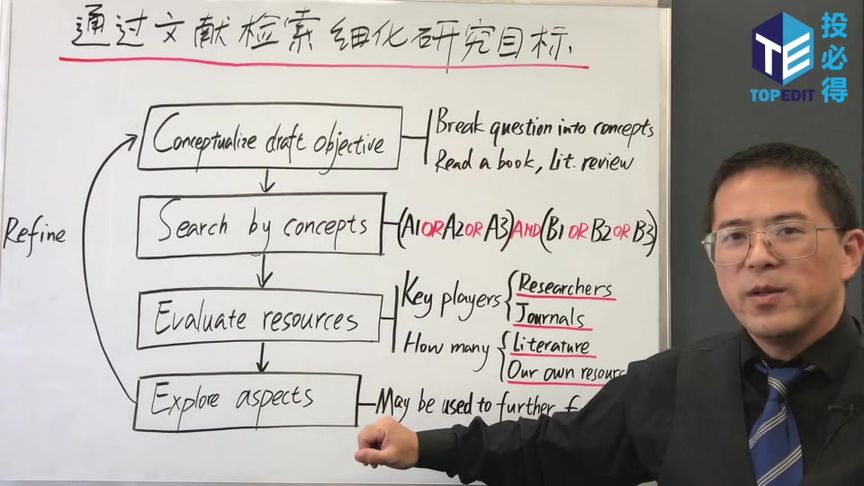 通过文献检索细化研究目标
TE
TOPEDIT
投必得
Conceptualize draft objective
Break question into concepts
Read a book, Lit. review
Refine
Search by concepts
(A1 OR A2 OR A3) AND (B1 OR B2 OR B3)
Evaluate resources
Key players { Researchers
Journals
How many { Literature
Our own
Explore aspects
May be used to further